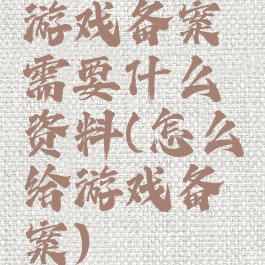 游戏备案
需要什么
资料(怎么
给游戏备
案)